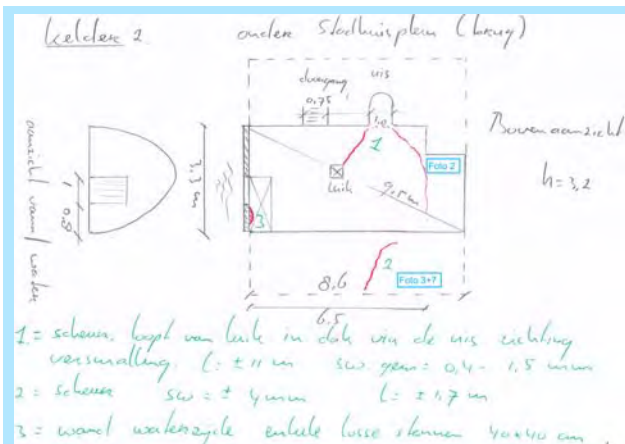 kelder 2 onder Stadhuisplein (brug)
doorgang
nis
0,75
1,0
Bovenaanzicht
h=3,2
aanzicht vanaf water
1
0,8
3,3 m
1
Foto 2
luik
9,5 m
3
2
Foto 3+7
8,6
6,5
1 = scheur, loopt van luik in dak via de nis richting
versmalling. L = ± 11 m sw. gem = 0,4 - 1,5 mm
2 = scheur sw = ± 4 mm L = ± 1,7 m
3 = wand waterzijde enkele losse stenen 40x40 cm.